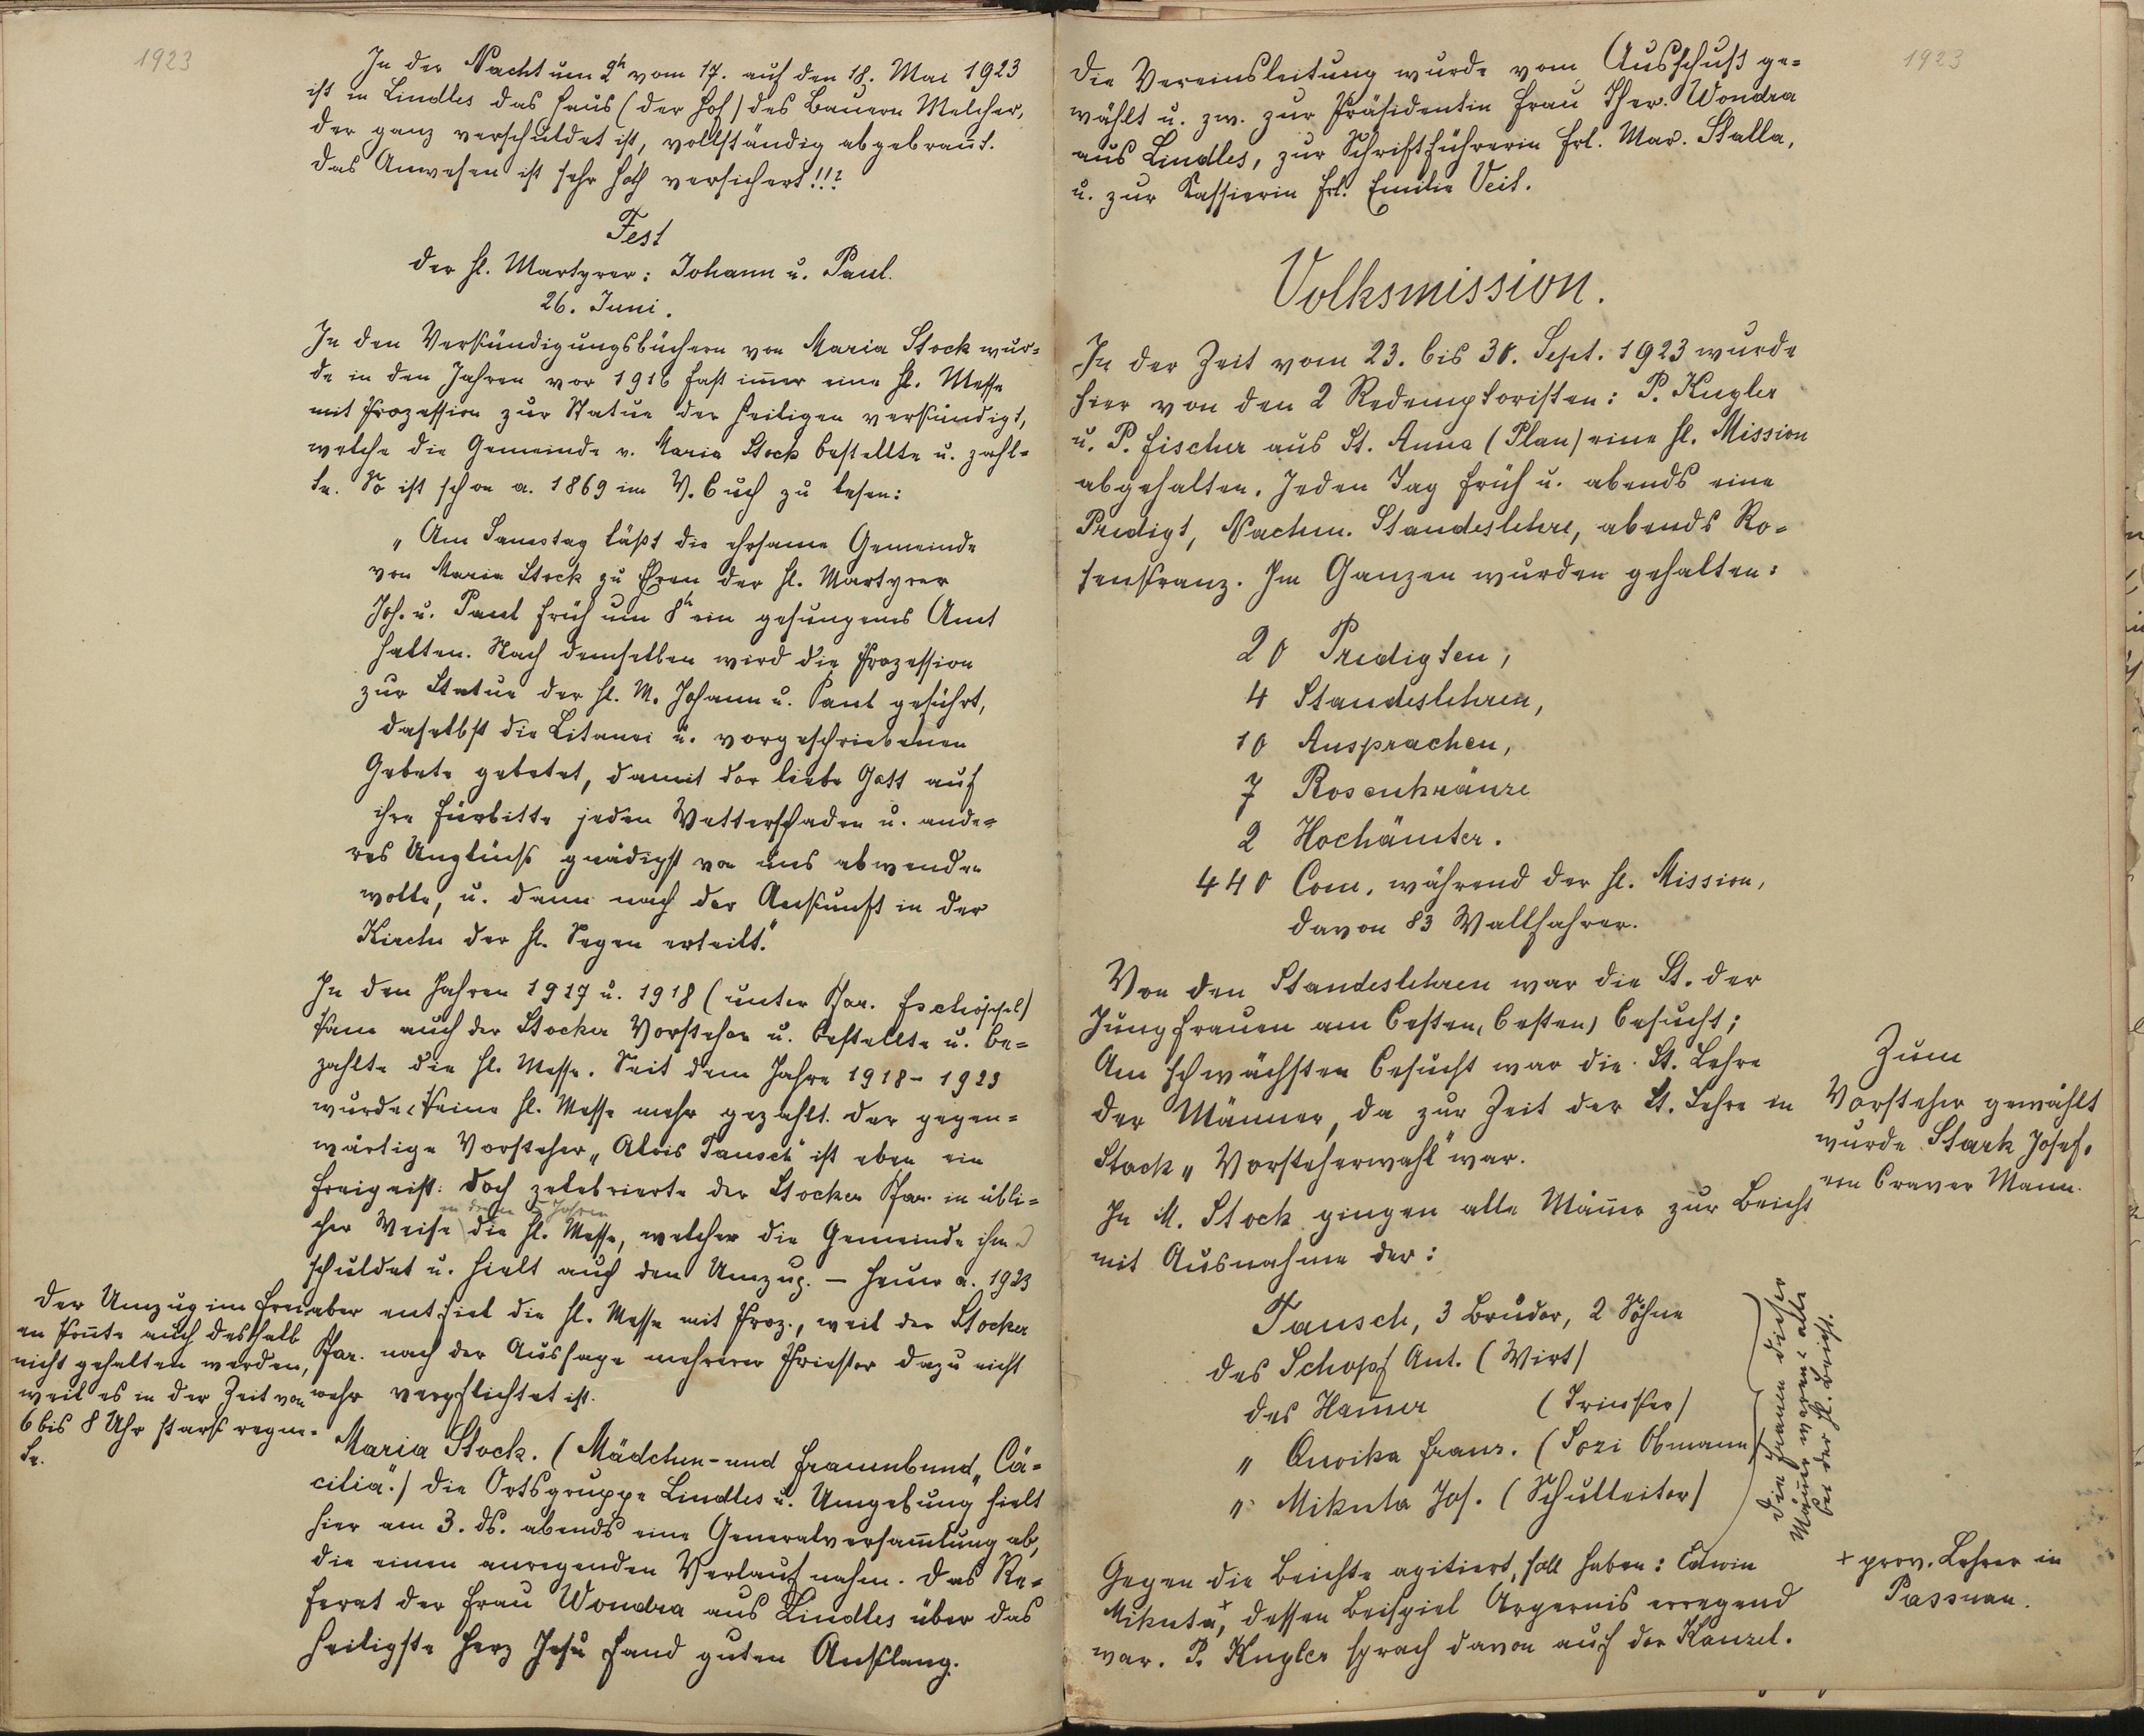 1923
In der Nacht um 2h vom 17. auf den 18. Mai 1923
ist in Lindles das Haus (der Hof) des Bauern Melcher,
der ganz verschuldet ist, vollständig abgebrannt.
Das Anwesen ist sehr hoch versichert!!?
Fest
der hl. Martyrer: Johann u. Paul.
26. Juni.
In den Verkündigungsbüchern von Maria Stock wur-
de in den Jahren vor 1916 fast im̅er eine hl. Messe
mit Prozession zur Statue der Heiligen verkündigt,
welche die Gemeinde v. Maria Stock bestellte u. zahl-
te. So ist schon a. 1869 im V. buch zu lesen:
„Am Samstag läßt die ehrsame Gemeinde
von Maria Stock zu Ehren der hl. Martyrer
Joh. u. Paul früh um 8h ein gesungenes Amt
halten. Nach demselben wird die Prozession
zur Statue der hl. M. Johann u. Paul geführt,
daselbst die Litanei u. vorgeschriebenen
Gebete gebetet, damit der liebe Gott auf
ihre Fürbitte jeden Wetterschaden u. ande-
res Unglück gnädigst von uns abwenden
wolle, u. dann nach der Ankunft in der
Kirche der hl. Segen erteilt."
In den Jahren 1917 u. 1918 (unter Pfar.
kam auch der Stocker Vorsteher u. bestellte u. be-
zahlte die hl. Messe. Seit dem Jahre 1918 - 1923
wurde keine hl. Messe mehr gezahlt. Der gegen-
wärtige Vorsteher „Alois Tausch" ist eben ein
Freigeist. Doch zelebrierte der Stocker Pfar. in übli-
in Jahren
cher Weise die hl. Messe, welche die Gemeinde ihm
schuldet u. hielt auch den Umzug. — Heuer a. 1923
aber entfiel die hl. Messe mit Proz., weil der Stocker
Pfar. nach der Aussage mehrerer Priester dazu nicht
mehr verpflichtet ist.
Der Umzug im Frei-
en kon̅te auch deshalb
nicht gehalten werden,
weil es in der Zeit von
6 bis 8 Uhr stark regne-
te.
Maria Stock. (Mädchen- und Frauenbund „Cä-
cilia".) Die Ortsgruppe Lindles u. Umgebung hielt
hier am 3. ds. abends eine Generalversam̅lung ab,
die einen anregenden Verlauf nahm. Das Re-
ferat der Frau Wondra aus Lindles über das
heiligste Herz Jesu fand guten Anklang.
1923
Die Vereinsleitung wurde vom Ausschuß ge-
wählt u. zw. zur Präsidentin Frau Ther. Wondra
aus Lindles, zur Schriftführerin Frl. Mar. Stalla,
u. zur Kassierin Frl. Emilie Veit.
Volksmission.
In der Zeit vom 23. bis 30. Sept. 1923 wurde
hier von den 2 Redemptoristen: P. Kugler
u. P. Fischer aus St. Anna (Plan) eine hl. Mission
abgehalten. Jeden Tag früh u. abends eine
Predigt, Nachm. Standeslehre, abends Ro-
senkranz. Im Ganzen wurden gehalten:
20 Predigten,
4 Standeslehren,
10 Ansprachen,
7 Rosenkränze
2 Hochämter.
440 Com. während der hl. Mission,
davon 83 Wallfahrer.
Von den Standeslehren war die St. der
Jungfrauen am besten, (besten) besucht;
Am schwächsten besucht war die St. Lehre
der Männer, da zur Zeit der St. Lehre in
Stock „Vorsteherwahl" war.
Zum
Vorsteher gewählt
wurde Stark Josef,
ein braver Mann.
In M. Stock gingen alle Män̅er zur Beicht
mit Ausnahme der:
Tausch, 3 Brüder, 2 Söhne
des Schopf Ant. (Wirt)
des Ham̅er (Trinker)
„ Franz. (Sozi Obmann)
„ Mikuta Jos. (Schulleiter)
Die Frauen dieser
Män̅er waren alle
bei der hl. Beicht.
Gegen die Beichte agitiert, soll haben: Edwin
Mikuta+, dessen Beispiel Ärgernis erregend
war. P. Kugler sprach davon auf der Kanzel.
+ prov. Lehrer in
Passnau.